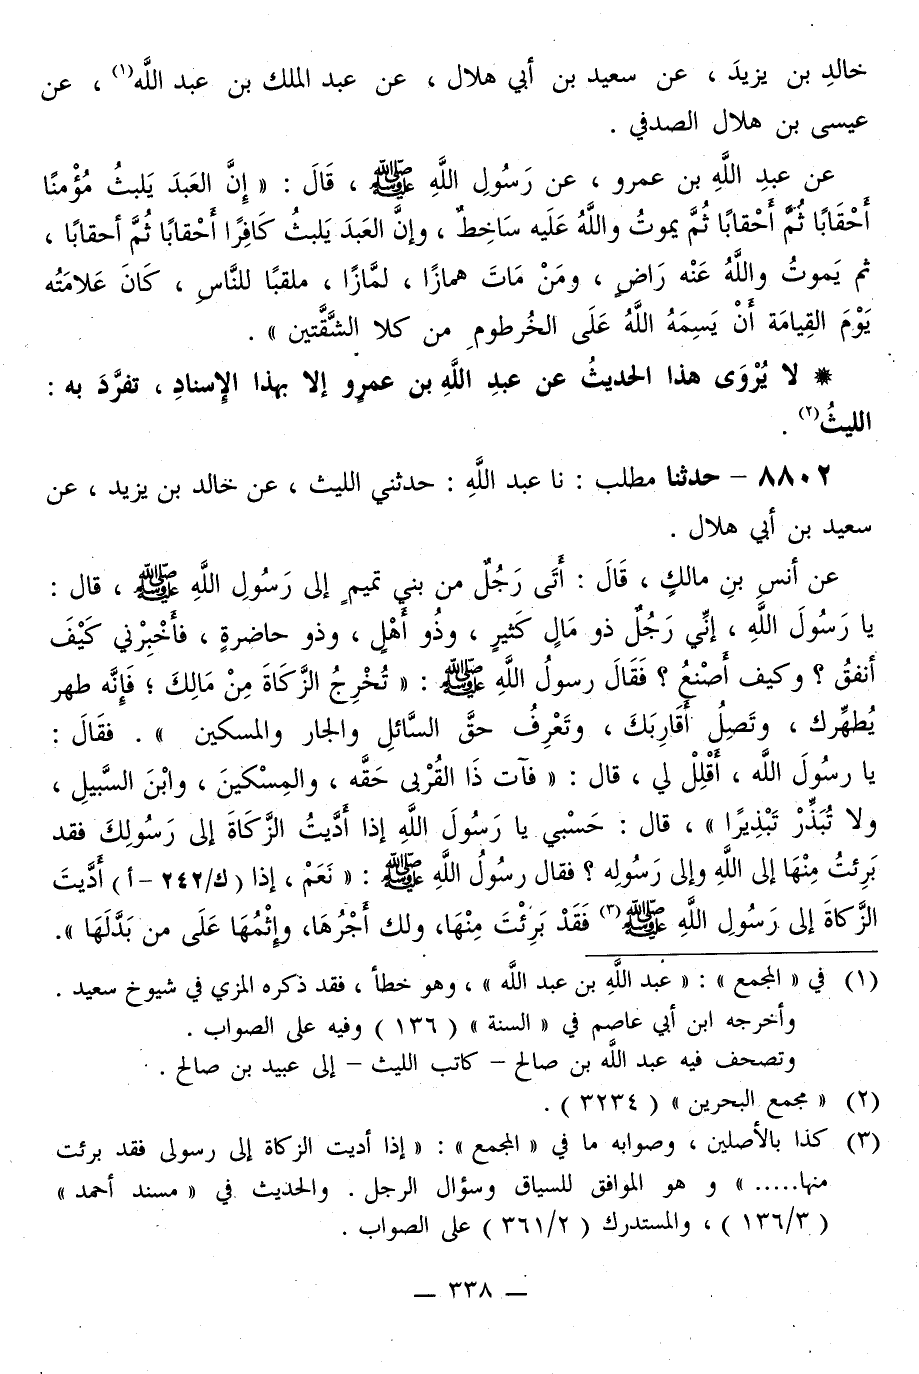 خالدِ بن يزيدَ ، عن سعيد بن أبي هلال ، عن عبد الملك بن عبد اللَّه(١) ، عن
عيسى بن هلال الصدفي .
عن عبدِ اللَّهِ بن عمرو ، عن رَسُولِ اللَّهِ ﷺ ، قَالَ : « إِنَّ العَبدَ يَلبثُ مُؤْمنًا
أَحْقَابًا ثُمَّ أَحْقابًا ثُمَّ يموتُ واللَّهُ عَلَيه سَاخِطٌ ، وإنَّ العَبدَ يَلبثُ كَافِرًا أَحْقابًا ثُمَّ أحقابًا ،
ثم يَموتُ واللَّهُ عَنْه رَاضٍ ، ومَنْ مَاتَ همازًا ، لمَّازًا ، ملقبًا للنَّاسِ ، كَانَ عَلامَتُه
يَوْمَ القِيامَة أَنْ يَسِمَهُ اللَّهُ عَلَى الخُرطومِ من كلا الشَّقَّتين » .
* لا يُرْوَى هذا الحديثُ عن عبدِ اللَّهِ بن عمرٍو إلا بهذا الإِسنادِ ، تفرَّدَ به :
الليثُ(٢) .
٨٨٠٢ – حدثنا مطلب : نا عبد اللَّهِ : حدثني الليث ، عن خالد بن يزيد ، عن
سعيد بن أبي هلال .
عن أنسِ بنِ مالكٍ ، قَالَ : أَتَى رَجُلٌ من بني تميمٍ إلى رَسُولِ اللَّهِ ﷺ ، قال :
يا رَسُولَ اللَّهِ ، إنِّي رَجُلٌ ذو مَالٍ كَثيرٍ ، وذُو أَهْلٍ ، وذو حاضرةٍ ، فأَخْبِرْني كَيْفَ
أنفقُ ؟ وكيف أَصْنَعُ ؟ فَقَالَ رسولُ اللَّهِ ﷺ : « تُخْرِجُ الزَّكَاةَ مِنْ مَالِكَ ؛ فَإِنَّه طهر
يُطهِّرك ، وتَصِلُ أَقَارِبَكَ ، وتَعْرِفُ حقَّ السَّائلِ والجار والمسكين » . فقَالَ :
يا رسُولَ اللَّه ، أَقْلِلْ لي ، قال : « فآت ذَا القُرْبى حَقَّه ، والمِسْكينَ ، وابْنَ السَّبيلِ ،
ولا تُبَذِّرْ تَبْذِيرًا » ، قال : حَسْبي يا رَسُولَ اللَّهِ إذا أَدَّيتُ الزَّكَاةَ إلى رَسُولِكَ فقد
بَرِئتُ مِنْهَا إلى اللَّهِ وإلى رَسُولِه ؟ فقال رسُولُ اللَّهِ ﷺ : « نَعَمْ ، إذا (ك/٢٤٢ – أ) أَدَّيتَ
الزَّكاةَ إلى رَسُولِ اللَّهِ ﷺ(٣) فَقَدْ بَرِئْتَ مِنْهَا، ولك أَجْرُهَا، وإِثْمُهَا عَلَى من بَدَّلَهَا ».
(١) في « المجمع » : « عبد اللَّهِ بن عبد اللَّه » ، وهو خطأ ، فقد ذكره المزي في شيوخ سعيد .
وأخرجه ابن أبي عاصم في « السنة » ( ١٣٦ ) وفيه على الصواب .
وتصحف فيه عبد اللَّه بن صالح – كاتب الليث – إلى عبيد بن صالح .
(٢) « مجمع البحرين » ( ٣٢٣٤ ) .
(٣) كذا بالأصلين ، وصوابه ما في « المجمع » : « إذا أديت الزكاة إلى رسولى فقد برئت
منها..... » و هو الموافق للسياق وسؤال الرجل . والحديث في « مسند أحمد »
( ١٣٦/٣ ) ، والمستدرك ( ٣٦١/٢ ) على الصواب .
— ٣٣٨ —